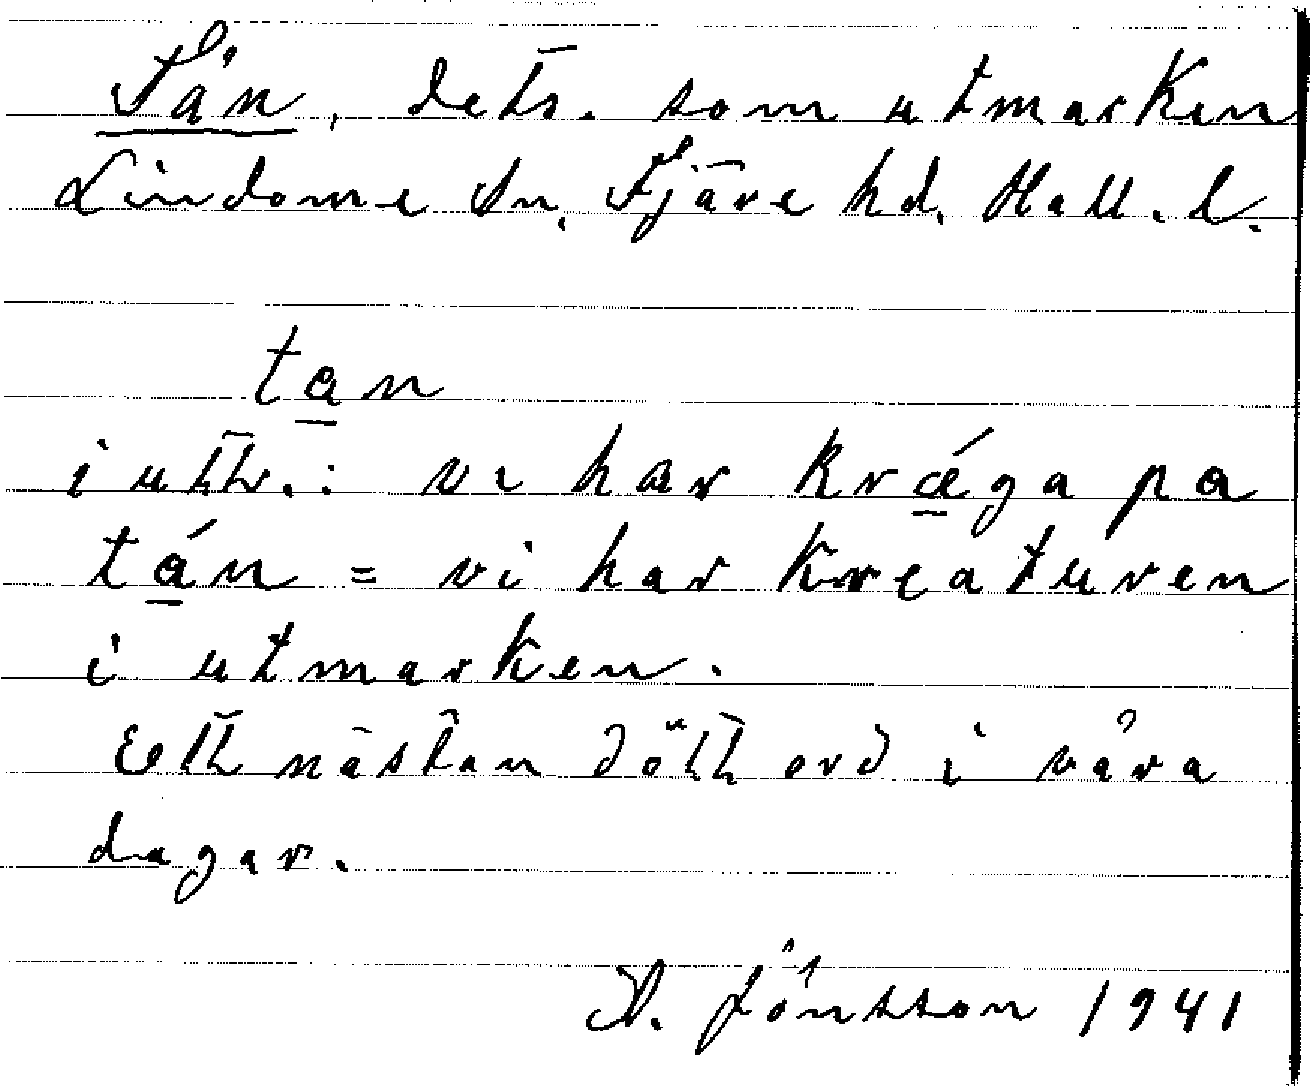 Tån, dets. som utmarken
Lindome Sn. Fjäre hd. Hall. l.
tan
i uttr.: vi har kræ´ga pa
tán = vi har kreaturen
i utmarken.
Ett nästan dött ord i våra
dagar.
A. Jönsson 1941